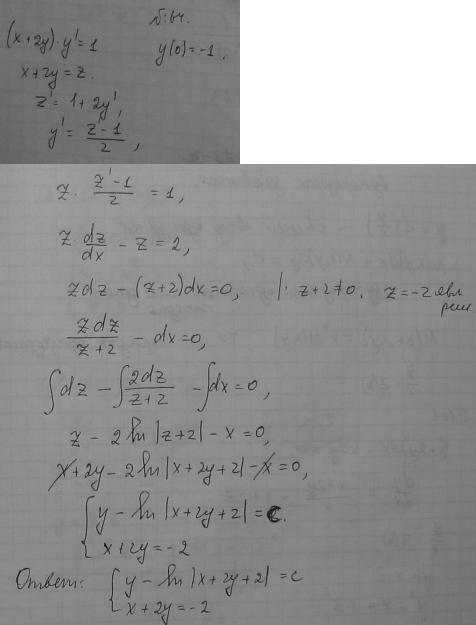 №64.
(x+2y)·y'=1 y(0)=-1.
x+2y=z.
z'=1+2y',
y'=\frac{z'-1}{2},
z·\frac{z'-1}{2}=1,
z·\frac{dz}{dx}-z=2,
zdz-(z+2)dx=0, |: z+2≠0. z=-2 явл.
реш.
\frac{zdz}{z+2}-dx=0,
∫dz-∫\frac{2dz}{z+2}-∫dx=0,
z-2ln|z+2|-x=0,
x+2y-2ln|x+2y+2|-x=0,
{y-ln|x+2y+2|=c.
x+2y=-2
Ответ: {y-ln|x+2y+2|=c
x+2y=-2